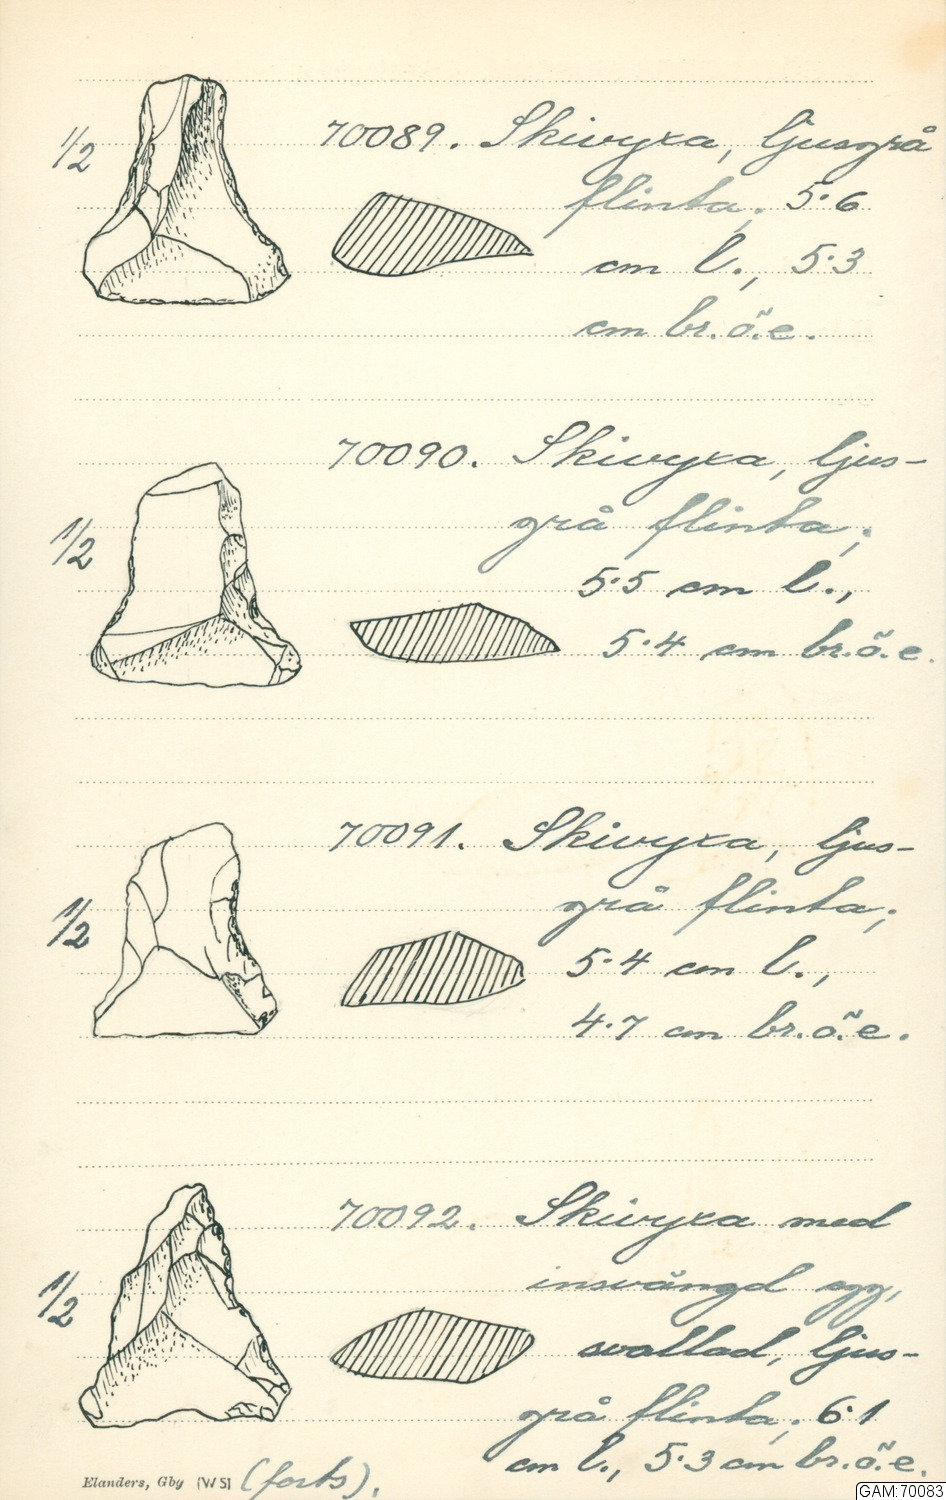 1/2 70089. Skivyxa, ljusgrå
flinta; 5·6
cm l., 5·3
cm br.ö.e.
70090. Skivyxa, ljus-
1/2 grå flinta;
5·5 cm l.,
5·4 cm br.ö.e.
70091. Skivyxa, ljus-
1/2 grå flinta;
5·4 cm l.,
4·7 cm br.ö.e.
70092. Skivyxa med
1/2 insvängd egg,
svallad, ljus-
grå flinta; 6·1
cm l., 5·3 cm br.ö.e.
Elanders, Gbg (forts).
GAM:70083